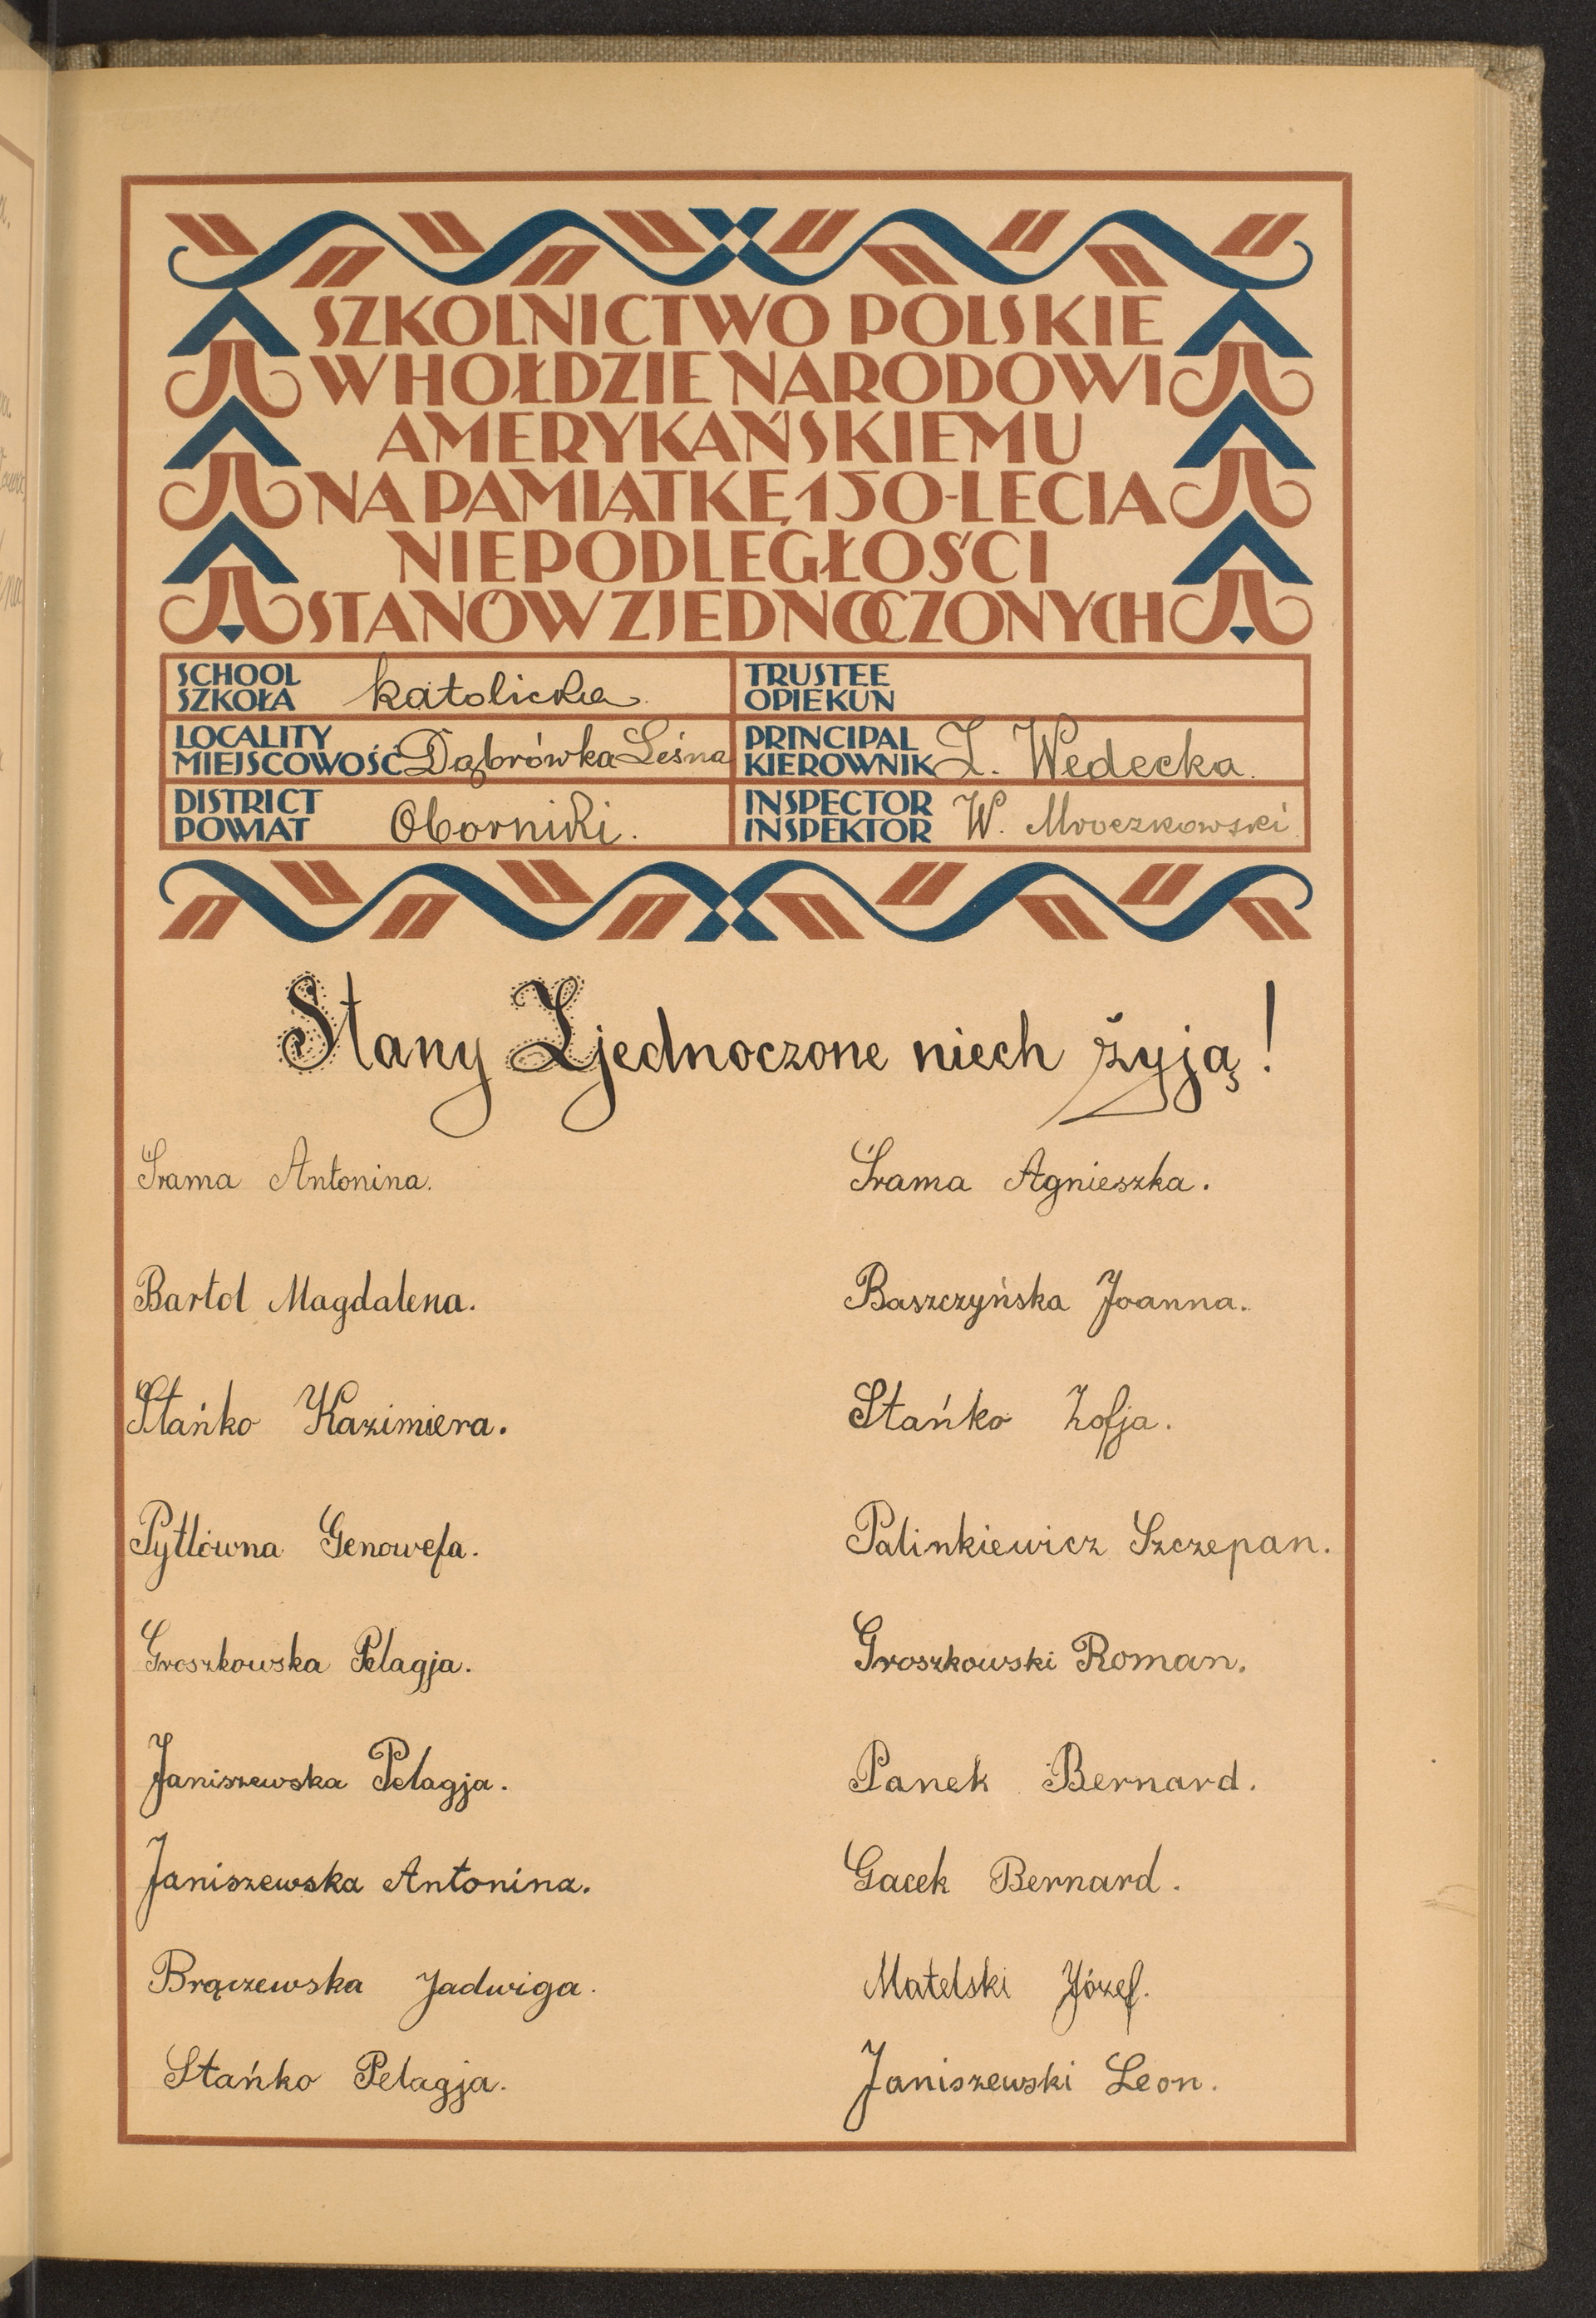 SZKOLNICTWO POLSKIE
W HOŁDZIE NARODOWI
AMERYKAŃSKIEMU
NA PAMIĄTKĘ 150-LECIA
NIEPODLEGŁOŚCI
STANÓW ZJEDNOCZONYCH
SCHOOL
SZKOŁA katolicka.
TRUSTEE
OPIEKUN
LOCALITY
MIEJSCOWOŚĆ Dąbrówka Leśna
PRINCIPAL
KIEROWNIK Z. Wedecka.
DISTRICT
POWIAT Oborniki.
INSPECTOR
INSPEKTOR W. Mroczkowski.
Stany Zjednoczone niech żyją!
Śrama Antonina.
Śrama Agnieszka.
Bartol Magdalena.
Baszczyńska Joanna.
Stańko Kazimiera.
Stańko Zofja.
Pytlówna Genowefa.
Palinkiewicz Szczepan.
Groszkowska Pelagja.
Groszkowski Roman.
Janiszewska Pelagja.
Panek Bernard.
Janiszewska Antonina.
Gacek Bernard.
Brączewska Jadwiga.
Matelski Józef.
Stańko Pelagja.
Janiszewski Leon.